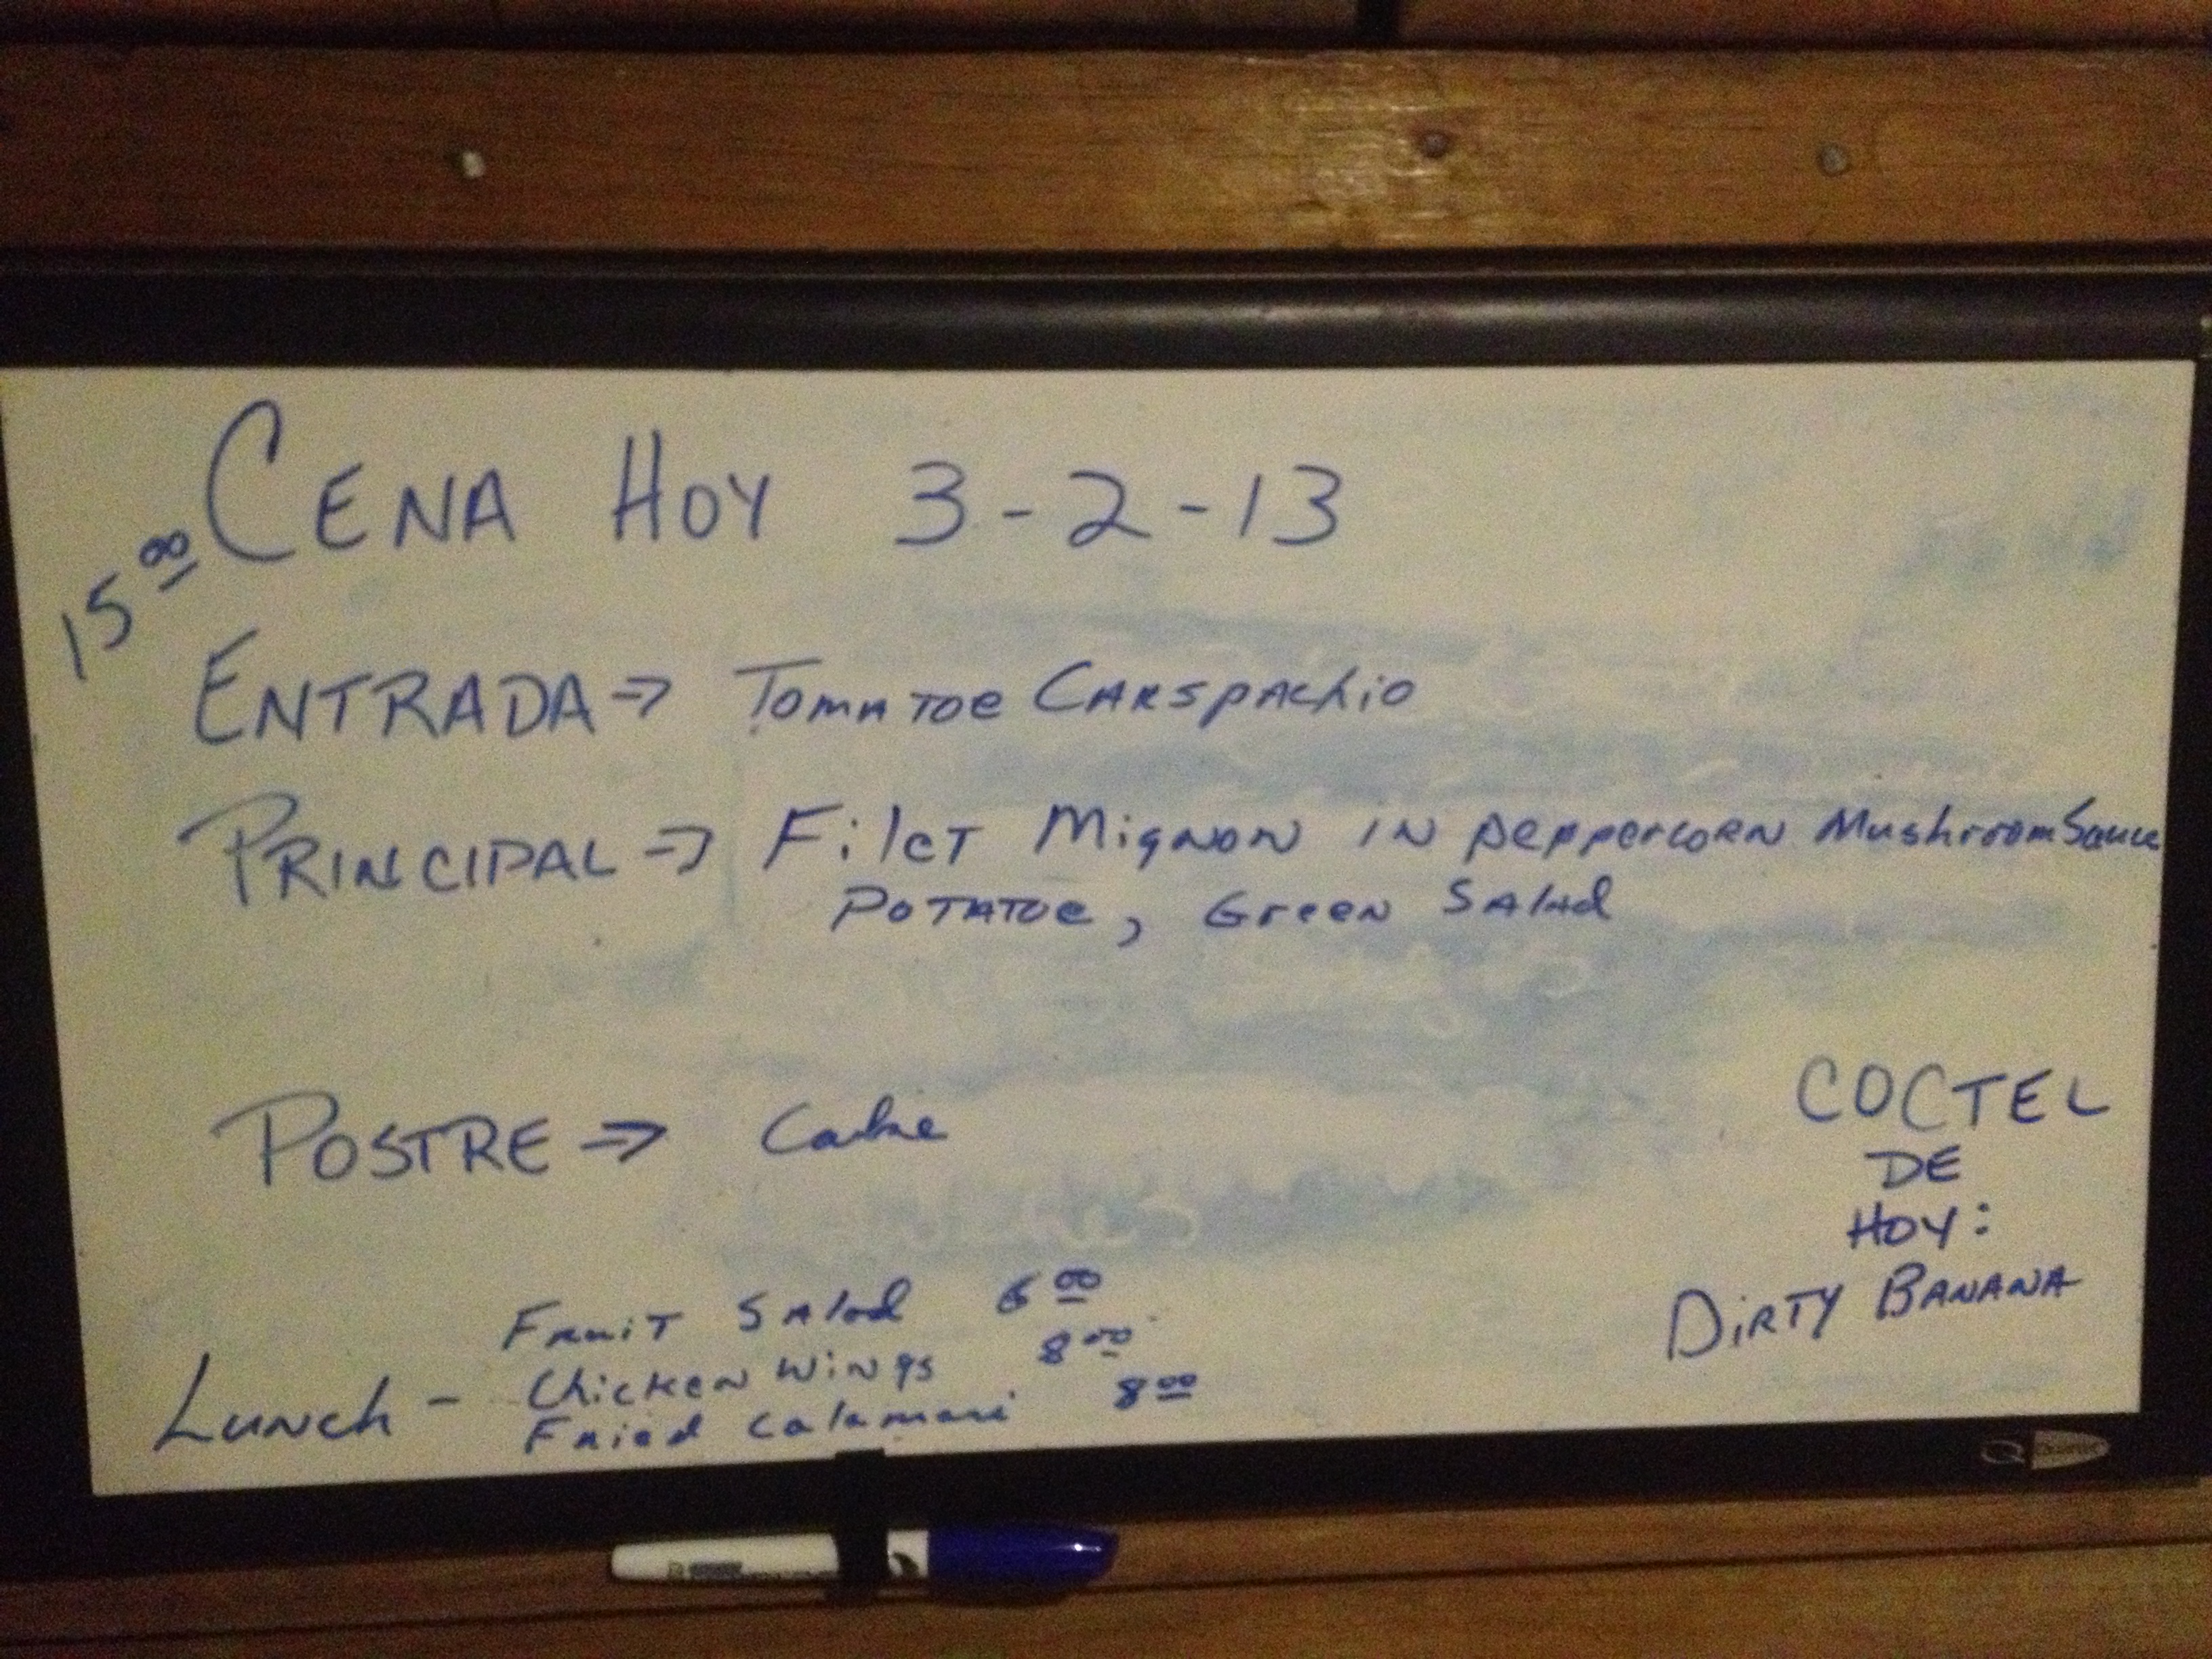 15.00 CENA HOY 3-2-13
ENTRADA => Tomatoe Carspachio
PRINCIPAL => Filet Mignon in peppercorn Mushroom Sauce
Potatoe, Green Salad
POSTRE => Cake
COCTEL
DE
HOY:
DIRTY BANANA
Fruit Salad 6.00
Lunch - Chicken Wings 8.00
Fried Calamari 8.00
Quartet